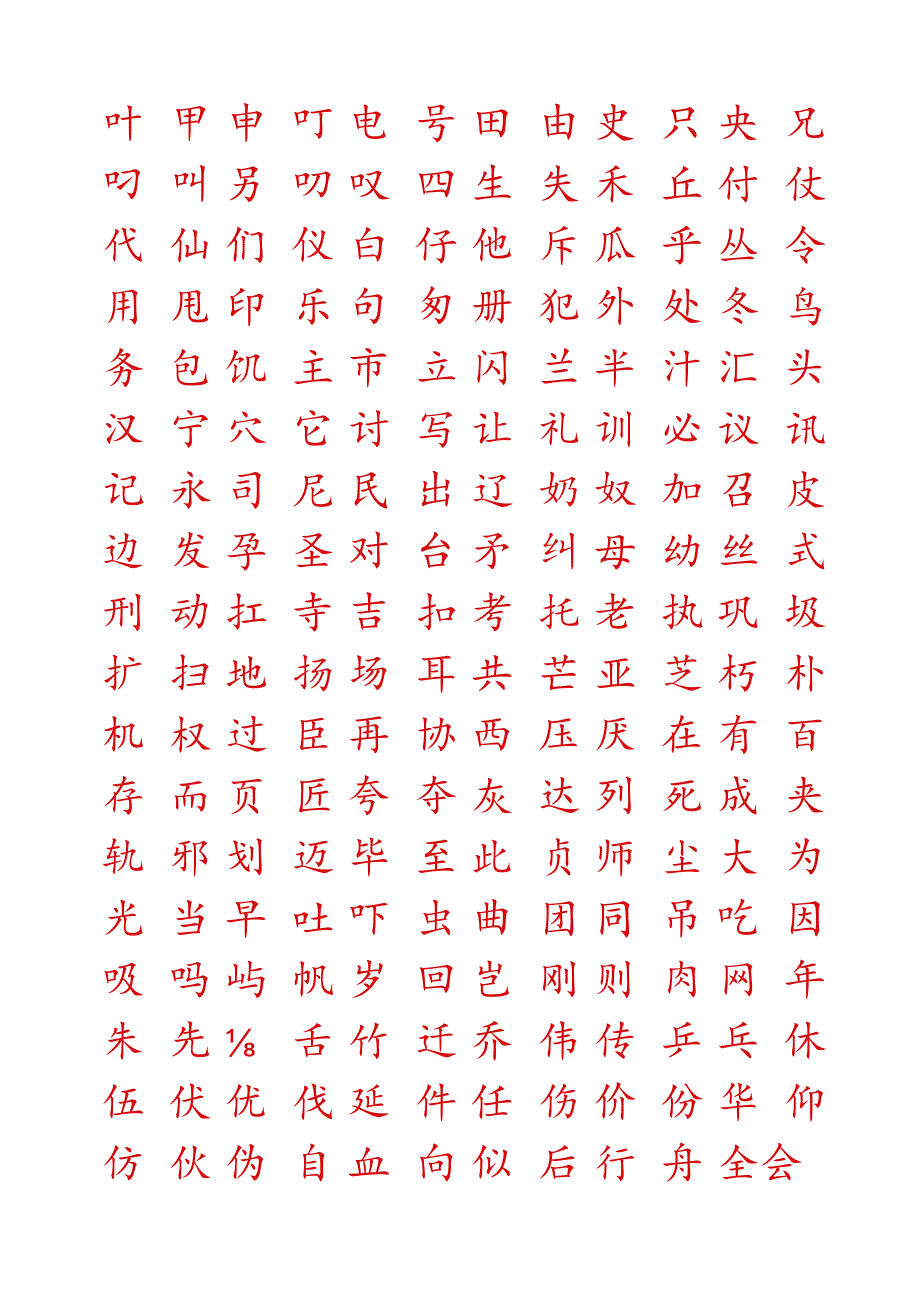 叶 甲 申 叮 电 号 田 由 史 只 央 兄
叼 叫 另 叨 叹 四 生 失 禾 丘 付 仗
代 仙 们 仪 白 仔 他 斥 瓜 乎 丛 令
用 甩 印 乐 句 匆 册 犯 外 处 冬 鸟
务 包 饥 主 市 立 闪 兰 半 汁 汇 头
汉 宁 穴 它 讨 写 让 礼 训 必 议 讯
记 永 司 尼 民 出 辽 奶 奴 加 召 皮
边 发 孕 圣 对 台 矛 纠 母 幼 丝 式
刑 动 扛 寺 吉 扣 考 托 老 执 巩 圾
扩 扫 地 扬 场 耳 共 芒 亚 芝 朽 朴
机 权 过 臣 再 协 西 压 厌 在 有 百
存 而 页 匠 夸 夺 灰 达 列 死 成 夹
轨 邪 划 迈 毕 至 此 贞 师 尘 大 为
光 当 早 吐 吓 虫 曲 团 同 吊 吃 因
吸 吗 屿 帆 岁 回 岂 刚 则 肉 网 年
朱 先 ⅛ 舌 竹 迁 乔 伟 传 乒 乓 休
伍 伏 优 伐 延 件 任 伤 价 份 华 仰
仿 伙 伪 自 血 向 似 后 行 舟 全 会